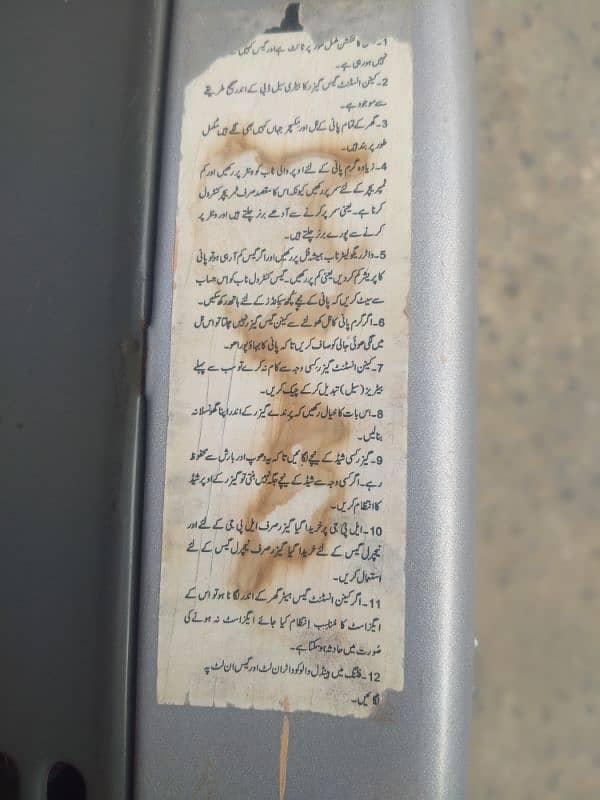 1- کنکشن مکمل طور پر ٹائٹ ہے اور گیس کہیں
نہیں ہو رہی ہے۔
2- کینن انسٹنٹ گیس گیزر کا بیٹری سیل ڈبی کے اندر صحیح طریقے
سے موجود ہے۔
3- گھر کے تمام پانی کے نل اور مکسچر جہاں کہیں بھی لگے ہیں مکمل
طور پر بند ہیں۔
4- زیادہ گرم پانی کے لئے اوپر والی ناب کو ونٹر پر رکھیں اور کم
ٹمپریچر کے لئے سمر پر رکھیں کیونکہ اس کا مقصد صرف ٹمپریچر کنٹرول
کرنا ہے۔ یعنی سمر پر کرنے سے آدھے برنر چلتے ہیں اور ونٹر پر
کرنے سے پورے برنر چلتے ہیں۔
5- واٹر ریگولیٹر ناب ہمیشہ فل پر رکھیں اور اگر گیس کم آرہی ہو تو پانی
کا پریشر کم کر دیں یعنی کم پر رکھیں۔ گیس کنٹرول ناب کو اس حساب
سے سیٹ کریں کہ پانی کے نیچے کچھ سیکنڈز کے لئے ہاتھ رکھ سکیں۔
6- اگر گرم پانی کا نل کھولنے سے کینن گیس گیزر نہیں چلتا تو اس نل
میں لگی ھوئی جالی کو صاف کریں تا کہ پانی کا بہاؤ پورا ھو۔
7- کینن انسٹنٹ گیزر کسی وجہ سے کام نہ کرے تو سب سے پہلے
بیٹریز (سیل) تبدیل کر کے چیک کریں۔
8- اس بات کا خیال رکھیں کہ پرندے گیزر کے اندر اپنا گھونسلا نہ
بنالیں۔
9- گیزر کسی شیڈ کے نیچے لگائیں تا کہ یہ دھوپ اور بارش سے محفوظ
رہے۔ اگر کسی وجہ سے شیڈ کے نیچے جگہ نہیں بنتی تو گیزر کے اوپر شیڈ
کا انتظام کریں۔
10- ایل پی جی پر خریدا گیا گیزر صرف ایل پی جی کے لئے اور
نیچرل گیس کے لئے خریدا گیا گیزر صرف نیچرل گیس کے لئے
استعمال کریں۔
11- اگر کینن انسٹنٹ گیس ہیٹر گھر کے اندر لگانا ہو تو اس کے
ایگزاسٹ کا مناسب انتظام کیا جائے ایگزاسٹ نہ ہونے کی
صورت میں حادثہ ہو سکتا ہے۔
12- فٹنگ میں ہینڈل والو کو واٹر ان لٹ اور گیس ان لٹ پہ
لگائیں۔